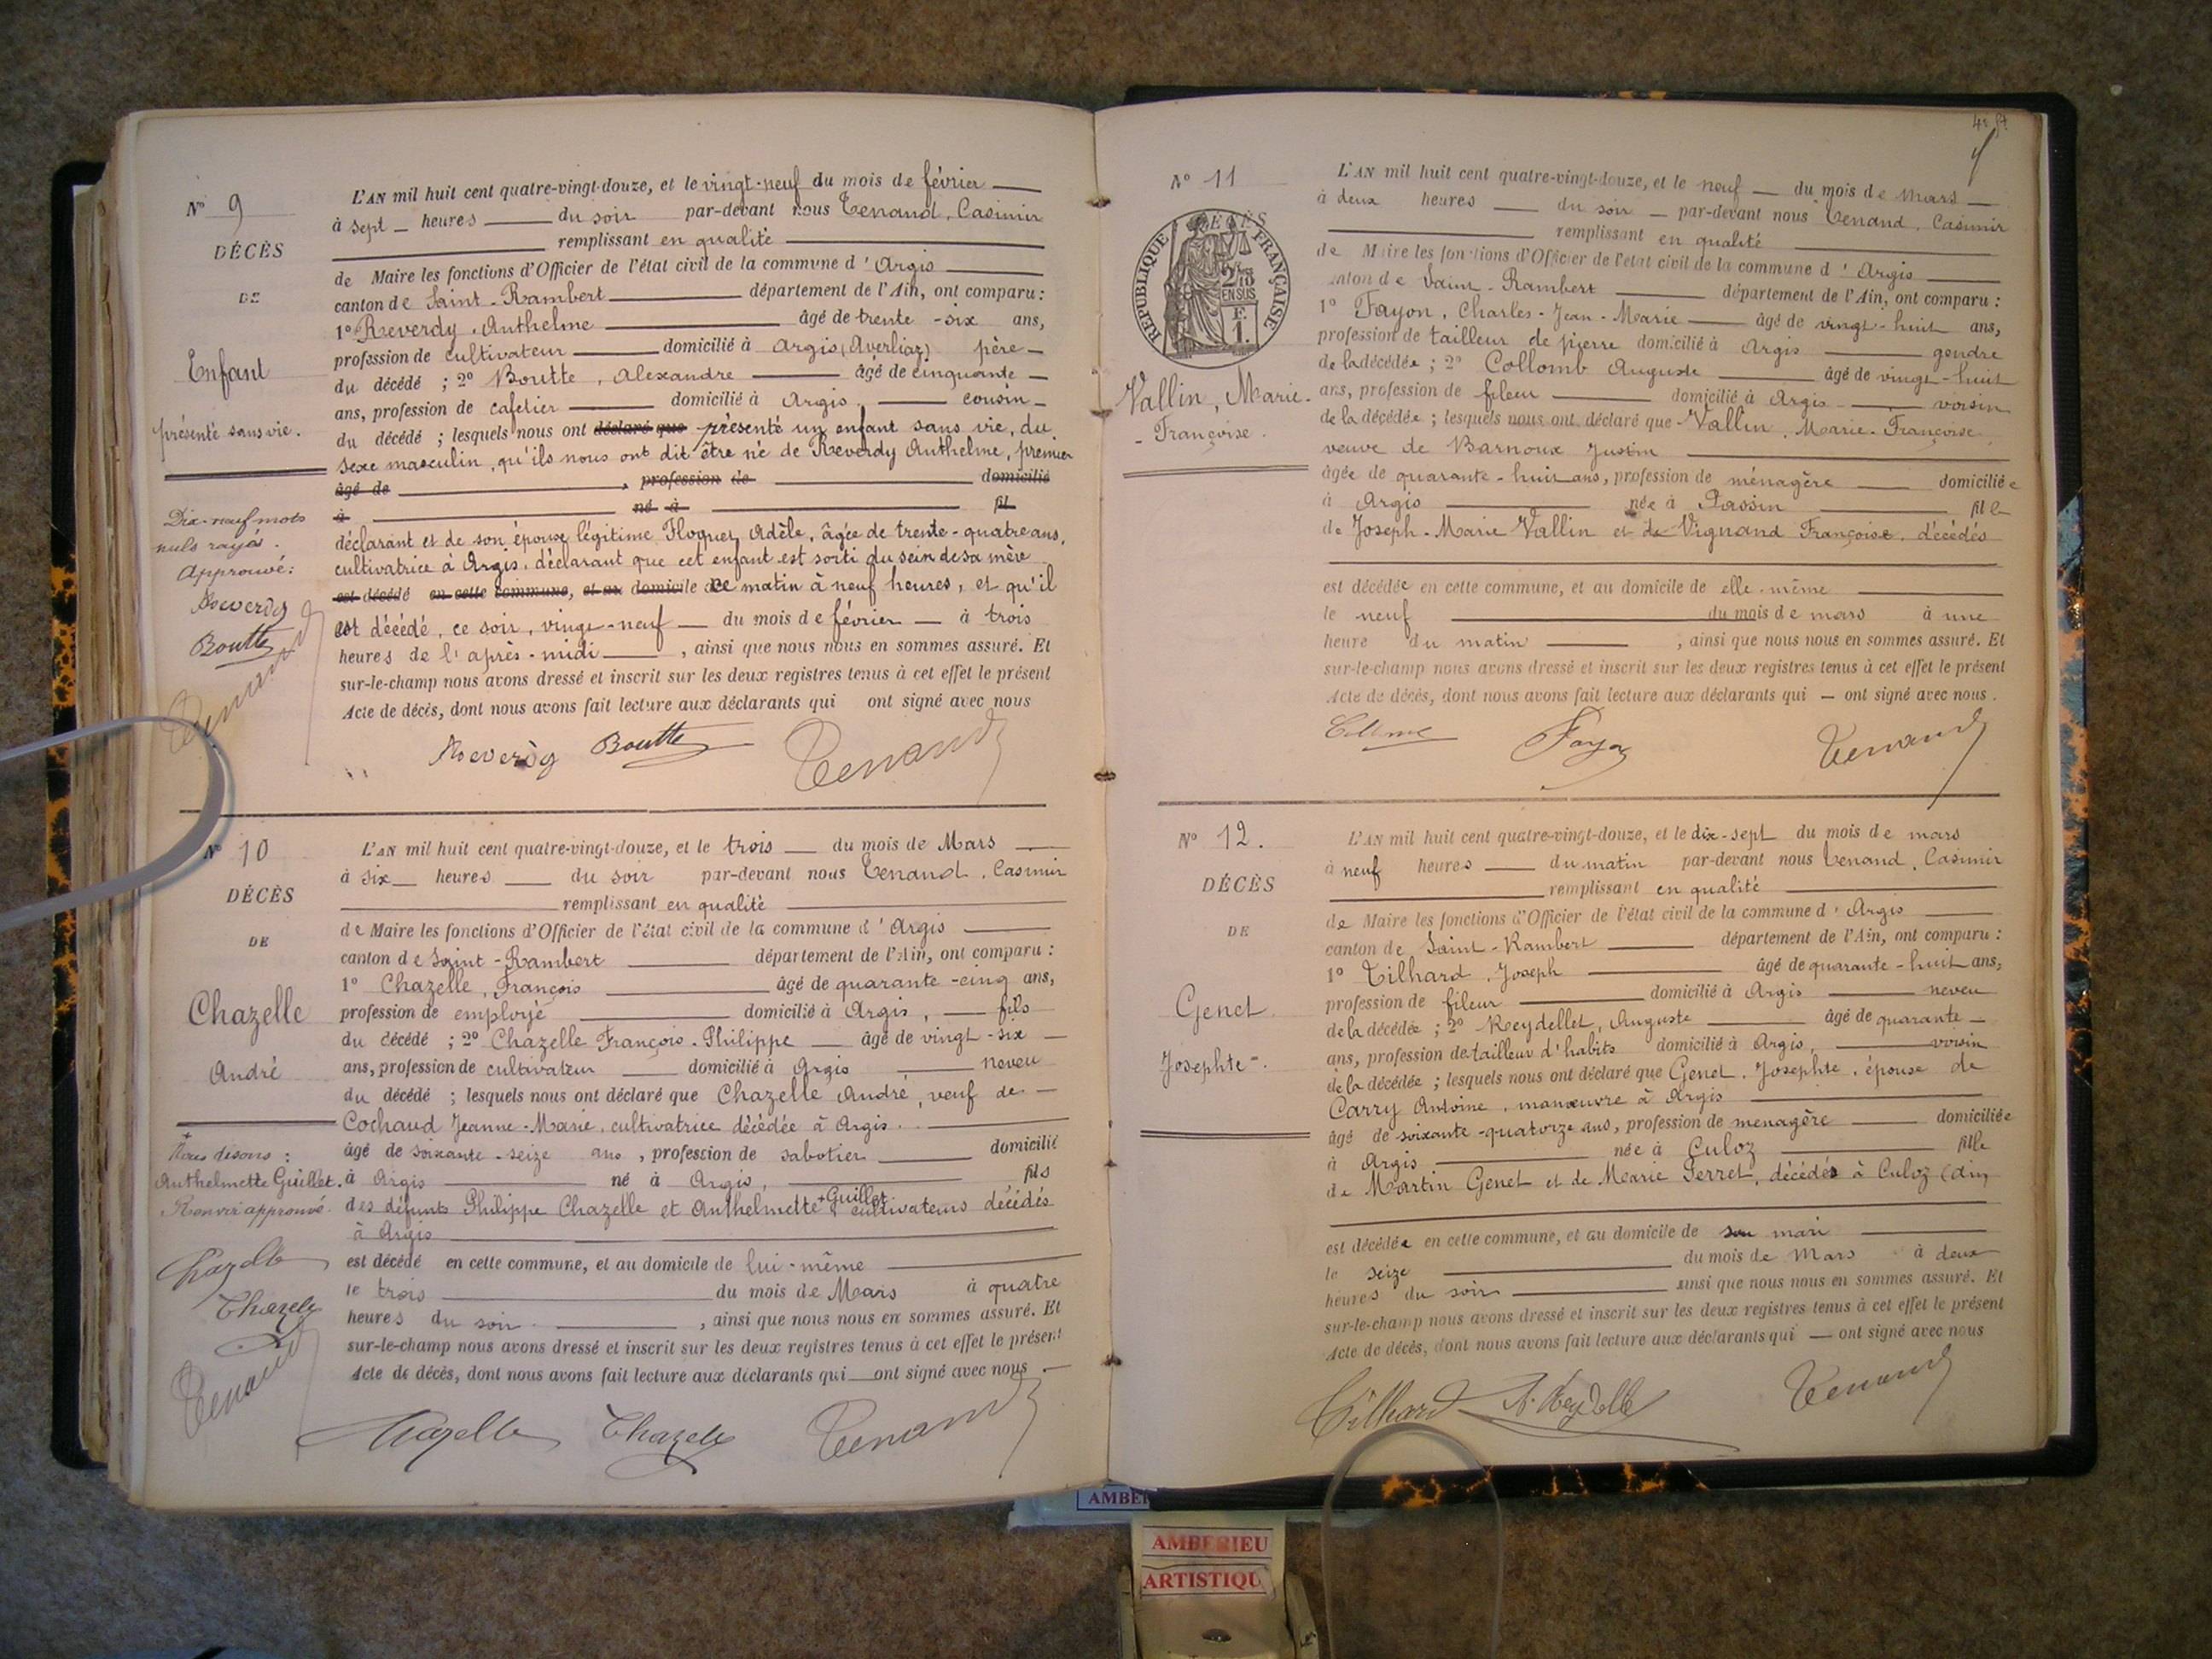 Nº 9
DÉCÈS
DE
Enfant
présenté sans vie.
Dix-neuf mots
nuls rayés.
Approuvé:
Reverdy
Boutte
Tenand
L'AN mil huit cent quatre-vingt-douze, et le vingt-neuf du mois de février
à sept heures du soir par-devant nous Tenand, Casimir
remplissant en qualité
de Maire les fonctions d'Officier de l'état civil de la commune d'Argis
canton de Saint-Rambert département de l'Ain, ont comparu :
1º Reverdy, Anthelme âgé de trente-six ans,
profession de cultivateur domicilié à Argis (Averliaz) père
du décédé ; 2º Boutte, Alexandre âgé de cinquante
ans, profession de cafetier domicilié à Argis, cousin
du décédé ; lesquels nous ont déclaré que présenté un enfant sans vie, du
sexe masculin, qu'ils nous ont dit être né de Reverdy Anthelme, premier
âgé de , profession de domicilié
à né à fil
déclarant et de son épouse légitime Floquet Adèle, âgée de trente-quatre ans,
cultivatrice à Argis, déclarant que cet enfant est sorti du sein de sa mère
est décédé en cette commune, et au domicile de ce matin à neuf heures, et qu'il
est décédé, ce soir, vingt-neuf du mois de février à trois
heures de l'après-midi , ainsi que nous nous en sommes assuré. Et
sur-le-champ nous avons dressé et inscrit sur les deux registres tenus à cet effet le présent
Acte de décès, dont nous avons fait lecture aux déclarants qui ont signé avec nous
Reverdy Boutte Tenand
Nº 10
DÉCÈS
DE
Chazelle
André
+ Nous disons :
Anthelmette Guillet.
Renvoi approuvé.
Chazelle
Chazelle
Tenand
L'AN mil huit cent quatre-vingt-douze, et le trois du mois de Mars
à six heures du soir par-devant nous Tenand, Casimir
remplissant en qualité
de Maire les fonctions d'Officier de l'état civil de la commune d'Argis
canton de Saint-Rambert département de l'Ain, ont comparu :
1º Chazelle, François âgé de quarante-cinq ans,
profession de employé domicilié à Argis, fils
du décédé ; 2º Chazelle François-Philippe âgé de vingt-six
ans, profession de cultivateur domicilié à Argis neveu
du décédé ; lesquels nous ont déclaré que Chazelle André, veuf de
Cochaud Jeanne-Marie, cultivatrice décédée à Argis.
âgé de soixante-seize ans, profession de sabotier domicilié
à Argis né à Argis, fils
des défunts Philippe Chazelle et Anthelmette + Guillet cultivateurs décédés
à Argis
est décédé en cette commune, et au domicile de lui-même
le trois du mois de Mars à quatre
heures du soir , ainsi que nous nous en sommes assuré. Et
sur-le-champ nous avons dressé et inscrit sur les deux registres tenus à cet effet le présent
Acte de décès, dont nous avons fait lecture aux déclarants qui ont signé avec nous
Chazelle Chazelle Tenand
Nº 11
DÉCÈS
RÉPUBLIQUE FRANÇAISE
2/10 EN SUS
F. 1.
Vallin, Marie-
-Françoise.
L'AN mil huit cent quatre-vingt-douze, et le neuf du mois de mars
à deux heures du soir par-devant nous Tenand, Casimir
remplissant en qualité
de Maire les fonctions d'Officier de l'état civil de la commune d'Argis
canton de Saint-Rambert département de l'Ain, ont comparu :
1º Fayon, Charles-Jean-Marie âgé de vingt-huit ans,
profession de tailleur de pierre domicilié à Argis gendre
de la décédée ; 2º Collomb Auguste âgé de vingt-huit
ans, profession de fileur domicilié à Argis voisin
de la décédée ; lesquels nous ont déclaré que Vallin, Marie-Françoise
veuve de Barnoux Justin
âgée de quarante-huit ans, profession de ménagère domiciliée
à Argis née à Passin fille
de Joseph-Marie Vallin et de Vignand Françoise, décédés
est décédée en cette commune, et au domicile de elle-même
le neuf du mois de mars à une
heure du matin , ainsi que nous nous en sommes assuré. Et
sur-le-champ nous avons dressé et inscrit sur les deux registres tenus à cet effet le présent
Acte de décès, dont nous avons fait lecture aux déclarants qui ont signé avec nous.
Fayon Tenand
Nº 12.
DÉCÈS
DE
Genet
Josephte
L'AN mil huit cent quatre-vingt-douze, et le dix-sept du mois de mars
à neuf heures du matin par-devant nous Tenand, Casimir
remplissant en qualité
de Maire les fonctions d'Officier de l'état civil de la commune d'Argis
canton de Saint-Rambert département de l'Ain, ont comparu :
1º Tilhard, Joseph âgé de quarante-huit ans,
profession de fileur domicilié à Argis neveu
de la décédée ; 2º Reydellet, Auguste âgé de quarante
ans, profession de tailleur d'habits domicilié à Argis, voisin
de la décédée ; lesquels nous ont déclaré que Genet, Josephte, épouse de
Carry Antoine, manœuvre à Argis
âgé de soixante-quatorze ans, profession de menagère domiciliée
à Argis née à Culoz fille
de Martin Genet et de Marie Perret, décédés à Culoz (Ain)
est décédée en cette commune, et au domicile de son mari
le seize du mois de Mars à deux
heures du soir ainsi que nous nous en sommes assuré. Et
sur-le-champ nous avons dressé et inscrit sur les deux registres tenus à cet effet le présent
Acte de décès, dont nous avons fait lecture aux déclarants qui ont signé avec nous
Tilhard A. Reydellet Tenand
AMBER
AMBERIEU
ARTISTIQU